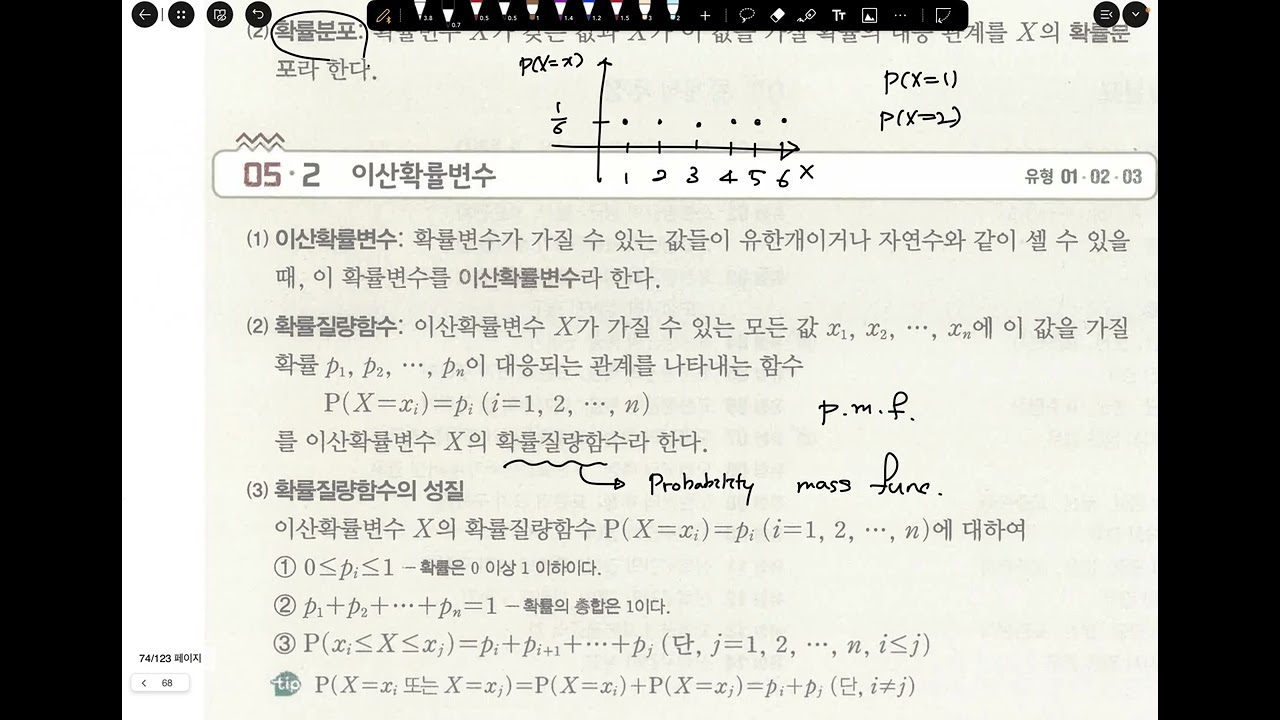 3.8 0.7 0.5 0.5 1 1.4 1.2 1.5 2
(2) 확률분포: 확률변수 X가 갖는 값과 X가 이 값을 가질 확률의 대응 관계를 X의 확률분
포라 한다.
P(X=x)
P(X=1)
1/6
P(X=2)
1 2 3 4 5 6 X
05·2 이산확률변수
유형 01·02·03
(1) 이산확률변수: 확률변수가 가질 수 있는 값들이 유한개이거나 자연수와 같이 셀 수 있을
때, 이 확률변수를 이산확률변수라 한다.
(2) 확률질량함수: 이산확률변수 X가 가질 수 있는 모든 값 x₁, x₂, ⋯, xₙ에 이 값을 가질
확률 p₁, p₂, ⋯, pₙ이 대응되는 관계를 나타내는 함수
P(X=xᵢ)=pᵢ (i=1, 2, ⋯, n)
p.m.f.
를 이산확률변수 X의 확률질량함수라 한다.
Probability mass func.
(3) 확률질량함수의 성질
이산확률변수 X의 확률질량함수 P(X=xᵢ)=pᵢ (i=1, 2, ⋯, n)에 대하여
① 0≤pᵢ≤1 – 확률은 0 이상 1 이하이다.
② p₁+p₂+⋯+pₙ=1 – 확률의 총합은 1이다.
③ P(xᵢ≤X≤xⱼ)=pᵢ+pᵢ₊₁+⋯+pⱼ (단, j=1, 2, ⋯, n, i≤j)
74/123 페이지
68
tip P(X=xᵢ 또는 X=xⱼ)=P(X=xᵢ)+P(X=xⱼ)=pᵢ+pⱼ (단, i≠j)